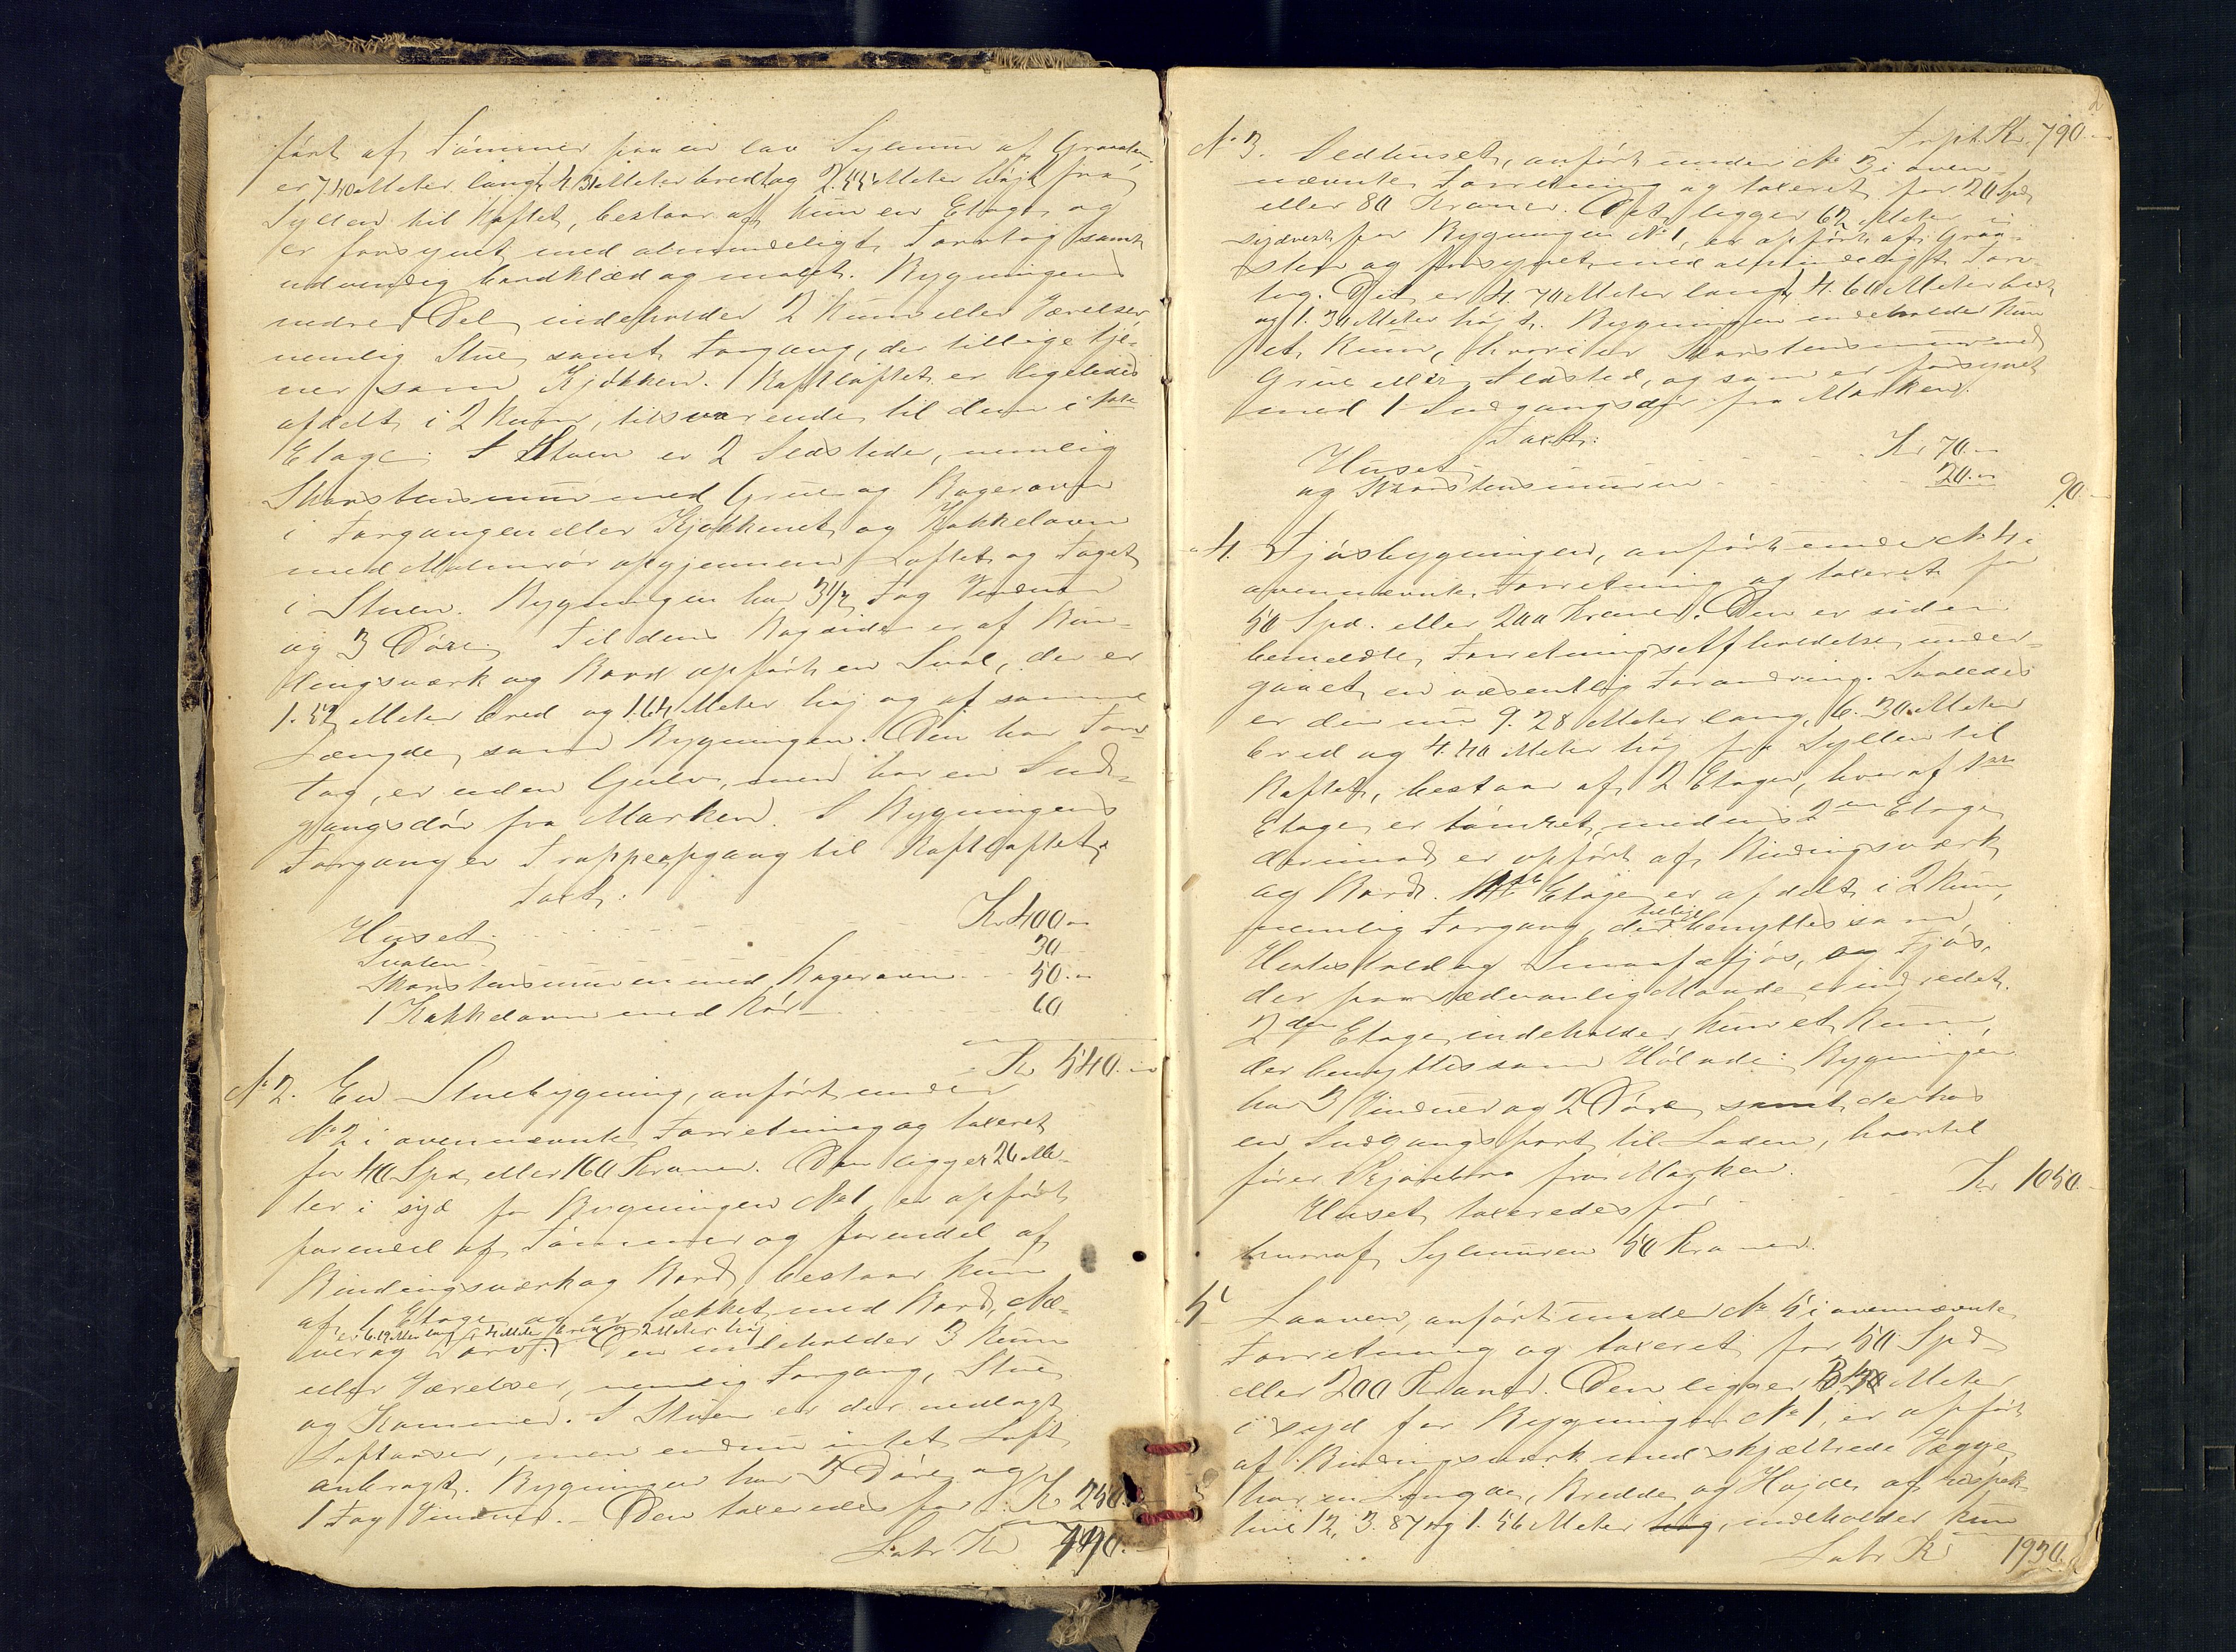 ført af Tømmer paa en lav Sylmuur af Graasten,
er 7.40 Meter langt, 4.31 Meter bredt og 2.55 Meter højt fra
Syllen til Raftet, bestaar af kun en Etage og
er forsynet med almindeligt Torvtag samt
udvendig bordklæd og malet. Bygningens
nedre Del indeholder 2 Rum eller Værelser,
nemlig Stue samt Forgang, der tillige tje-
ner som Kjøkken. Raftloftet er ligeledes
afdelt i 2 Rum, tilsvarende til dem i 1ste
Etage. I Stuen er 2 Ildsteder, nemlig
Skorstensmuur med Grue og Bagerovn
i Forgangen eller Kjøkkenet og Kakkelovn
med Malmrør opgjennem Loftet og Taget
i Stuen. Bygningen har 3 1/2 Fag Vinduer
og 3 Døre. Til dens Bagside er af Bin-
dingsværk og Bord opført en Sval, der er
1.52 Meter bred og 1.64 Meter høj og af samme
Længde som Bygningen. Den har Torv-
tag, er uden Gulv, men har en Ind-
gangsdør fra Marken. I Bygningens
Forgang er Trappeopgang til Raftloftet.
Taxt:
Huset Kr 400 "
Svalen 30
Skorstensmuren med Bagerovn 50 "
1 Kakkelovn med Rør 60
Kr 540. "
No 2. En Stuebygning, anført under
No 2 i ovennævnte Forretning og taxeret
for 40 Spd. eller 160 Kroner. Den ligger 26 Me-
ter i syd for Bygningen No 1, er opført
forendel af Tømmer og forendel af
Bindingsværk og Bord, bestaar kun
af 1 Etage og er tækket med Bord, Næ-
er 6.19 Meter lang, 4 Meter bred og 2 Meter høj
ver og Torv. Den indeholder 3 Rum
eller Værelser, nemlig Forgang, Stue
og Kammer. I Stuen er der nedlagt
Loftaaser, men endnu intet Loft
anbragt. Bygningen har 3 Døre og
1 Fag Vinduer. – Den taxeredes for: Kr 250.
Latr Kr 790. "
Trpt. Kr 790 "
No 3. Ildhuset, anført under No 3 i oven-
nævnte Forretning og taxeret for 20 Spd.
eller 80 Kroner. Det ligger 62 Meter i
sydvest for Bygningen No 1, er opført af Graa-
sten og forsynet med almindeligt Torv-
tag. Det er 4.70 Meter langt, 4.60 Meter bredt
og 1.30 Meter højt. Bygningen indeholder kun
et Rum, hvori er Skorstensmuur med
Grue eller Ildsted, og som er forsynet
med 1 Indgangsdør fra Marken.
Taxt:
Huset Kr 70 "
og Skorstensmuren 20. "
90 "
" 4. Fjøsbygningen, anført under No 4 i
ovennævnte Forretning og taxeret for
50 Spd. eller 200 Kroner. Den er siden
bemeldte Forretnings Afholdelse under-
gaaet en væsentlig Forandring. Saaledes
er den nu 9.28 Meter lang, 6.30 Meter
bred og 4.40 Meter høj fra Syllen til
Raftet, bestaar af 2 Etager, hvoraf 1ste
Etage er tømret, medens 2den Etage
derimod er opført af Bindingsværk
og Bord. 1ste Etage er afdelt i 2 Rum,
nemlig Forgang, der tillige benyttes som
Hestestald og Smaafæfjøs, og Fjøs,
der paa sædvanlig Maade er indredet.
2den Etage indeholder kun et Rum,
der benyttes som Hølade. Bygningen
har 3 Vinduer og 2 Døre samt derhos
en Indgangsport til Laden, hvortil
fører Kjørebro fra Marken.
Huset taxeredes for Kr 1050. "
hvoraf Sylmuren 50 Kroner.
5 Laaven, anført under No 5 i ovennævnte
Forretning og taxeret for 50 Spd
eller 200 Kroner. Den ligger Meter
i syd for Bygningen No 1, er opført
af Bindingsværk med skjælbrede Vægge,
har en Længde, Bredde og Højde af respek-
tive 12, 3.87 og 1.56 Meter, indeholder kun
Latr Kr 1930. "